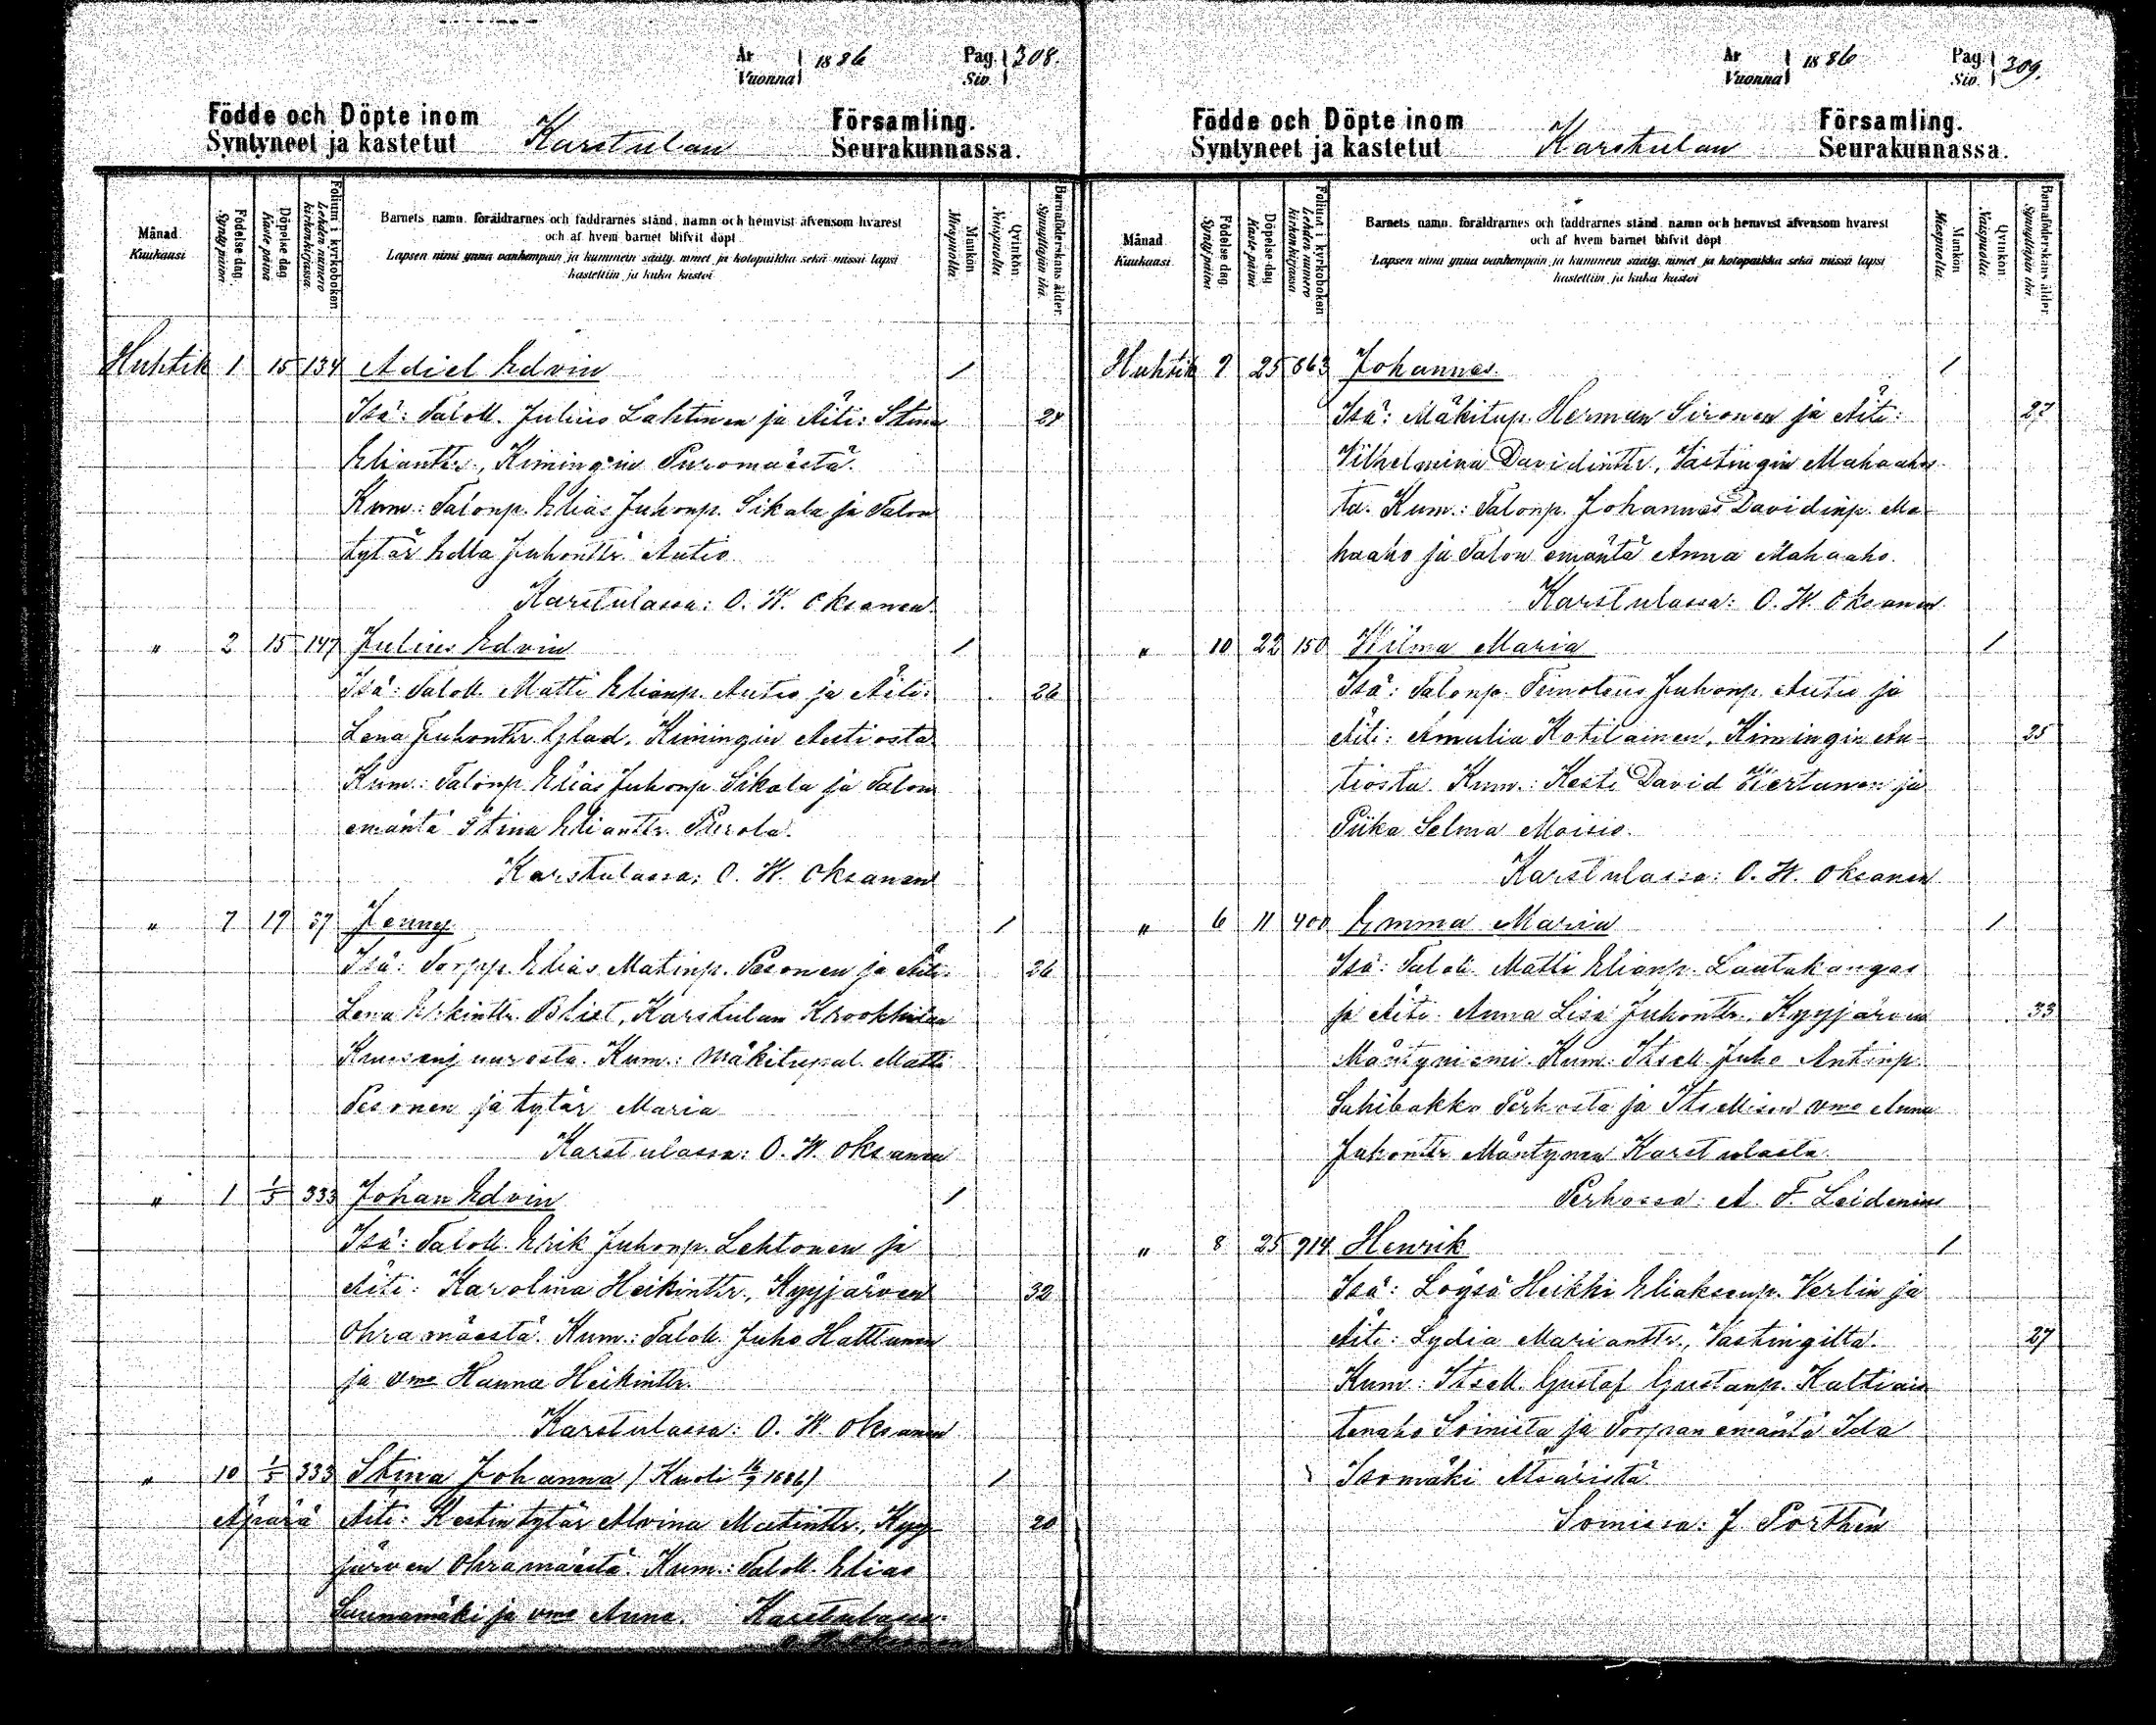 År Vuonna 1886 Pag. Siv. 308.
Födde och Döpte inom Karstulan Församling.
Syntyneet ja kastetut Seurakunnassa.
Månad Kuukausi
Födelse dag. Synty päivä
Döpelse dag Kaste päivä
Folium i kyrkoboken Lehden numero kirkonkirjassa.
Barnets namn, föräldrarnes och faddrarnes stånd, namn och hemvist äfvensom hvarest
och af hvem barnet blifvit döpt
Lapsen nimi ynnä vanhempain ja kummein sääty, nimet ja kotopaikka sekä missä lapsi
kastettiin ja kuka kastoi
Mankön. Miespuolia.
Qvinkön. Naispuolia
Barnaföderskans ålder. Synnyttäjän ikä.
Huhtik 1 15 134 Adiel Edvin 1
Isä: Taloll. Julius Lahtinen ja Äiti: Stina 24
Elianttr., Kimingin Puromäestä.
Kum.: Talonp. Elias Juhonp. Sikala ja Talon
tytär Edla Juhonttr. Autio
Karstulassa: O. W. Oksanen.
" 2 15 147 Julius Edvin 1
Isä: Taloll. Matti Elianp. Autio ja Äiti: 26
Lena Juhonttr. Glad, Kimingin Autiosta
Kum.: Talonp. Elias Juhonp. Sikala ja Talon
emäntä Stina Elianttr. Purola.
Karstulassa: O. W. Oksanen
" 7 19 37 Jenny 1
Isä: Torpp. Elias Matinp. Pesonen ja Äiti: 26
Lena Erkinttr. Blist, Karstulan Krookkilan
Kum.: Mäkitupal. Matti
Pesonen ja tytär Maria
Karstulassa: O. W. Oksanen
" 1 1/5 333 Johan Edvin 1
Isä: Taloll. Erik Juhonp. Lehtonen ja
Äiti: Karolina Heikinttr., Kyyjärven 32
Ohramäestä. Kum.: Taloll. Juho Hattunen
ja vmo Hanna Heikinttr.
Karstulassa: O. W Oksanen
" 10 1/5 333 Stina Johanna /Kuoli 16/7 1886/ 1
Äpärä Äiti: Kestin tytär Alvina Matinttr., Kyy 20
järven Ohramäestä. Kum.: Taloll. Elias
Saunamäki ja vmo Anna. Karstulassa
O. W. Oksanen
År Vuonna 1886 Pag. Siv. 309.
Födde och Döpte inom Karstulan Församling.
Syntyneet ja kastetut Seurakunnassa.
Månad Kuukausi
Födelse dag. Synty päivä
Döpelse dag Kaste päivä
Folium i kyrkoboken Lehden numero kirkonkirjassa
Barnets namn, föräldrarnes och faddrarnes stånd, namn och hemvist äfvensom hvarest
och af hvem barnet blifvit döpt
Lapsen nimi ynnä vanhempain ja kummein sääty, nimet ja kotopaikka sekä missä lapsi
kastettiin ja kuka kastoi
Mankön Miespuolia.
Qvinkön Naispuolia
Barnaföderskans ålder. Synnyttäjän ikä
Huhtik 9 25 863 Johannes 1
Isä: Mäkitup. Herman Sironen ja Äiti: 27
Vilhelmina Davidinttr., Vastingin Mahaahos
ta. Kum.: Talonp. Johannes Davidinp. Ma
haaho ja Talon emäntä Anna Mahaaho.
Karstulassa: O. W. Oksanen
" 10 22 150 Wilma Maria 1
Isä: Talonp. Timoteus Juhonp. Autio ja
Äiti: Amalia Kotilainen, Kimingin Au- 25
tiosta. Kum.: Kesti David Hertunen ja
Piika Selma Moisio.
Karstulassa: O. W. Oksanen
" 6 11 400 Emma Maria 1
Isä: Taloll. Matti Elianp. Lautakangas
ja Äiti Anna Lisa Juhonttr., Kyyjärven 33
Mäntyniemi. Kum: Itsell. Juho Antinp.
Perhosta ja Itsellisen vmo Anna
Juhonttr Mäntynen Karstulasta.
Perhossa: A. F. Leidenius
" 8 25 914 Henrik 1
Isä: Loysä Heikki Eliaksenp. Verlin ja
Äiti: Lydia Marianttr., Vastingilta. 27
Kum: Itsell. Gustaf Gustanp. Kattiais
tenaho Soinista ja Torpan emäntä Ida
Isomäki Ätsäristä
Soinissa: J. Porthén